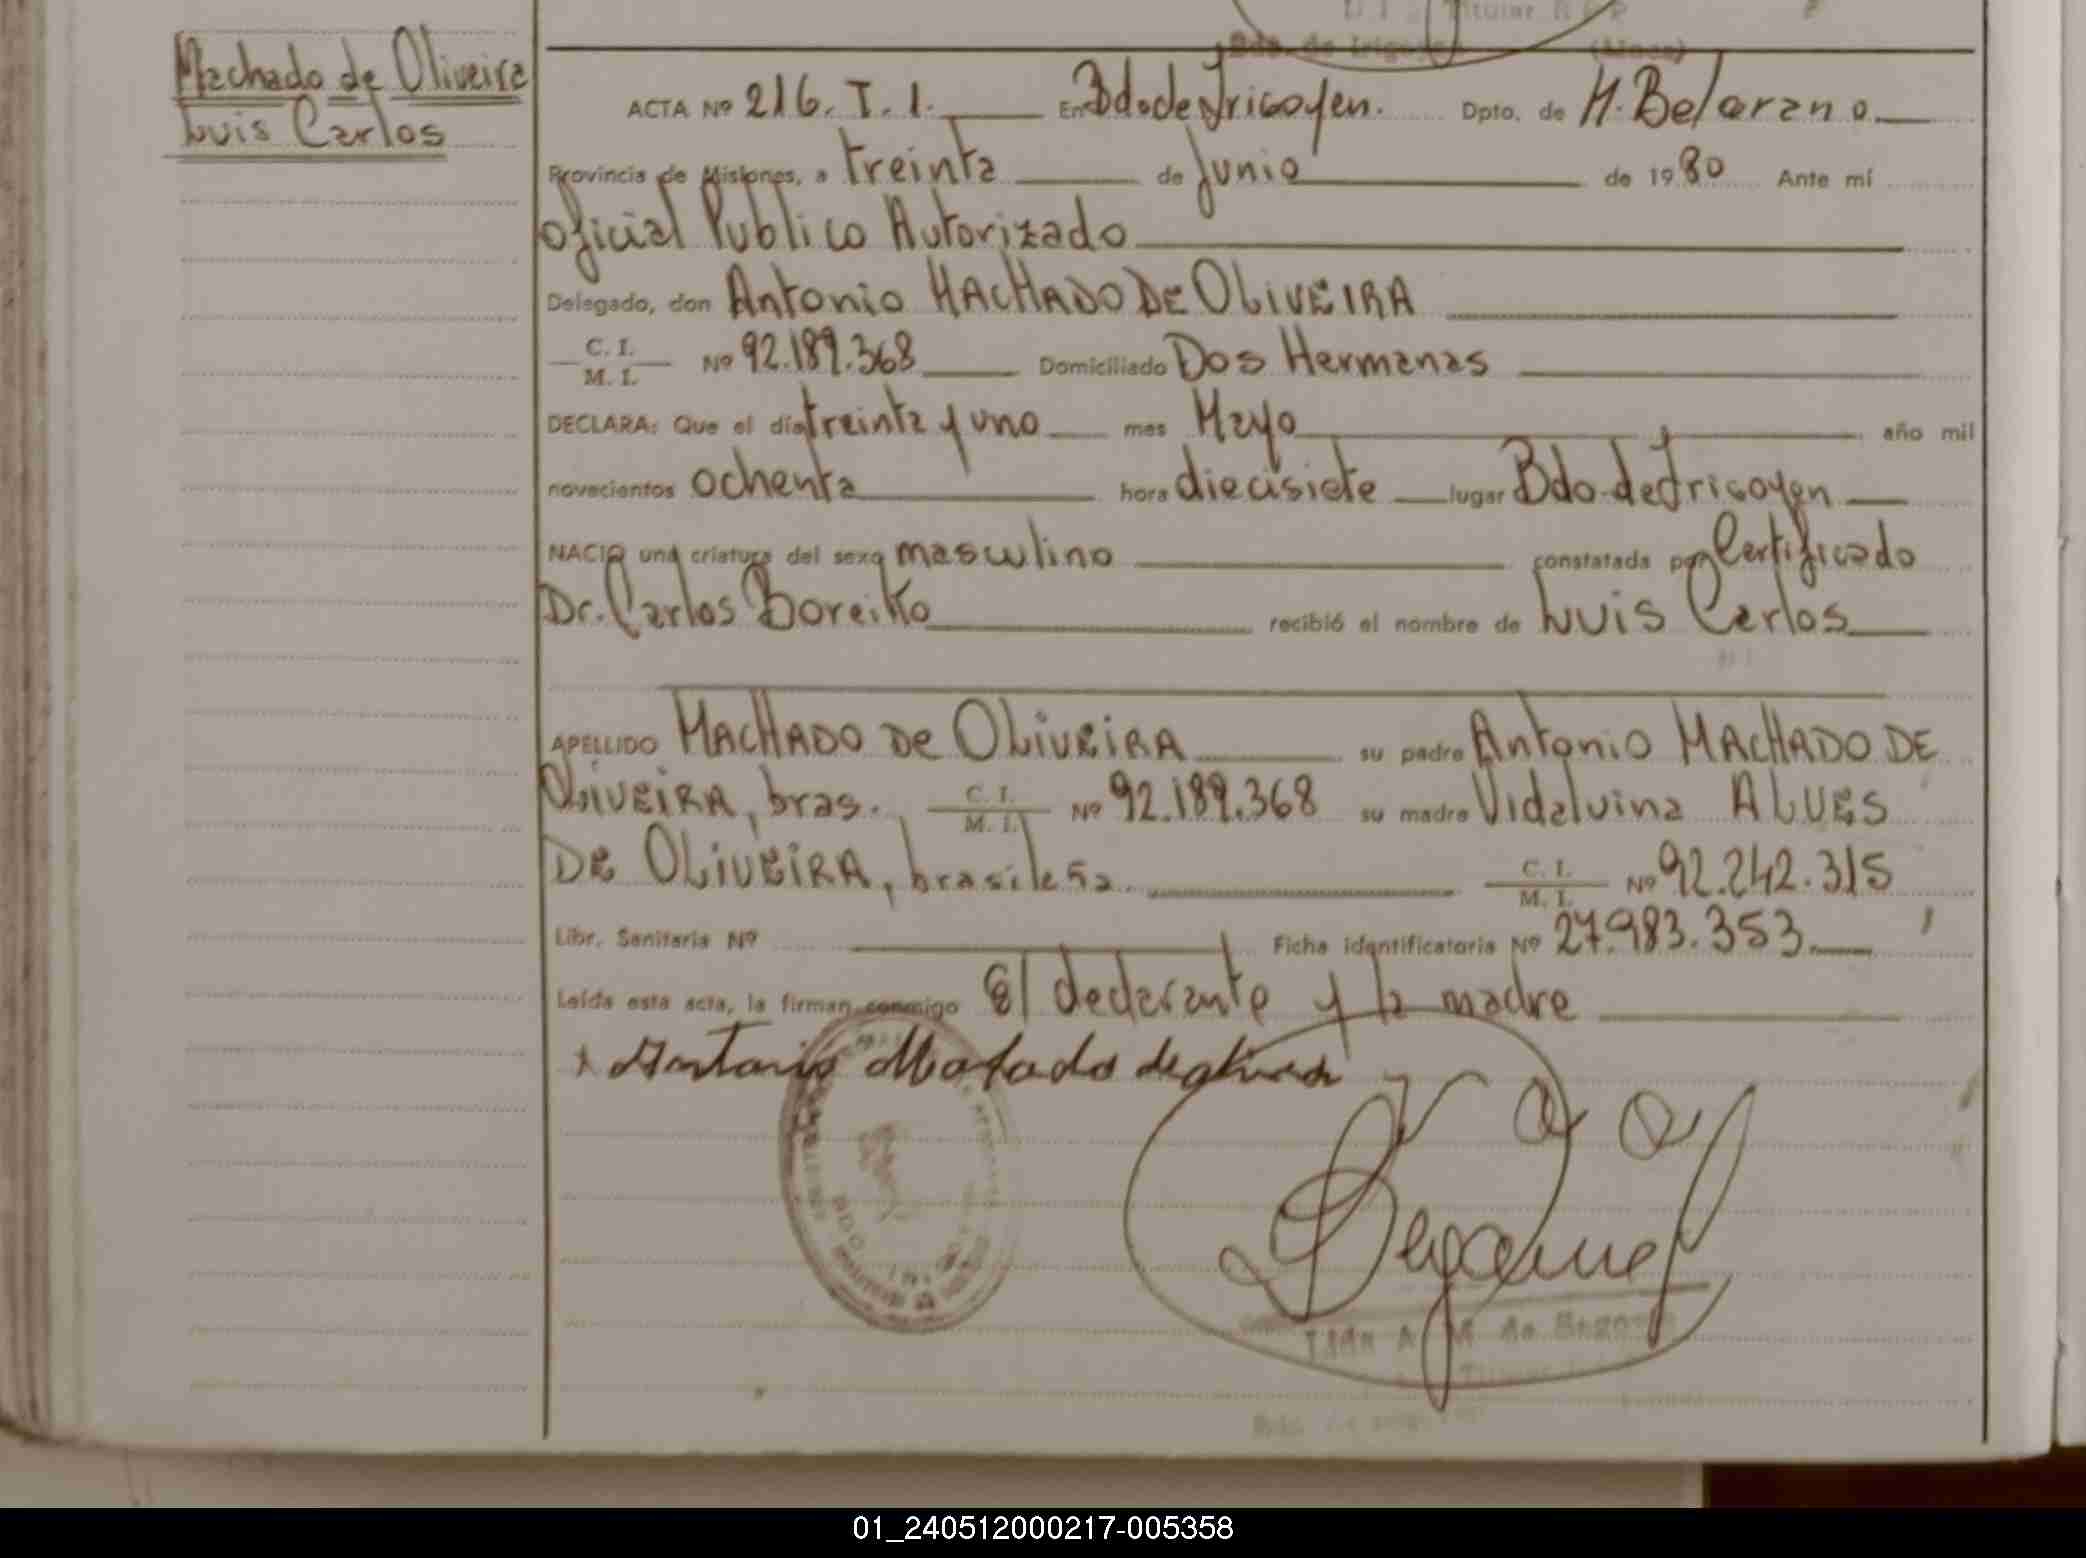 D I Titular R C P
Bdo. de Irigoyen (Mnes)
Machado de Oliveira
Luis Carlos
ACTA Nº 216. T. 1. En Bdo. de Irigoyen. Dpto. de M. Belgrano.
Provincia de Misiones, a treinta de junio de 1980 Ante mí
oficial Publico Autorizado
Delegado, don Antonio MACHADO DE OLIVEIRA
C. I.
M. I. Nº 92.189.368 Domiciliado Dos Hermanas
DECLARA: Que el día treinta y uno mes Mayo año mil
novecientos ochenta hora diecisiete lugar Bdo. de Irigoyen
NACIO una criatura del sexo masculino constatada por Certificado
Dr. Carlos Boreiko recibió el nombre de Luis Carlos
APELLIDO MACHADO DE OLIVEIRA su padre Antonio MACHADO DE
OLIVEIRA, bras. C. I.
M. I. Nº 92.189.368 su madre Vidalvina ALVES
DE OLIVEIRA, brasileña. C. I.
M. I. Nº 92.242.315
Libr. Sanitaria Nº Ficha identificatoria Nº 27.983.353.
Leída esta acta, la firman conmigo El declarante y la madre
x Antonio Machado de oliveira
Ilda A M de Bogado
01_240512000217-005358